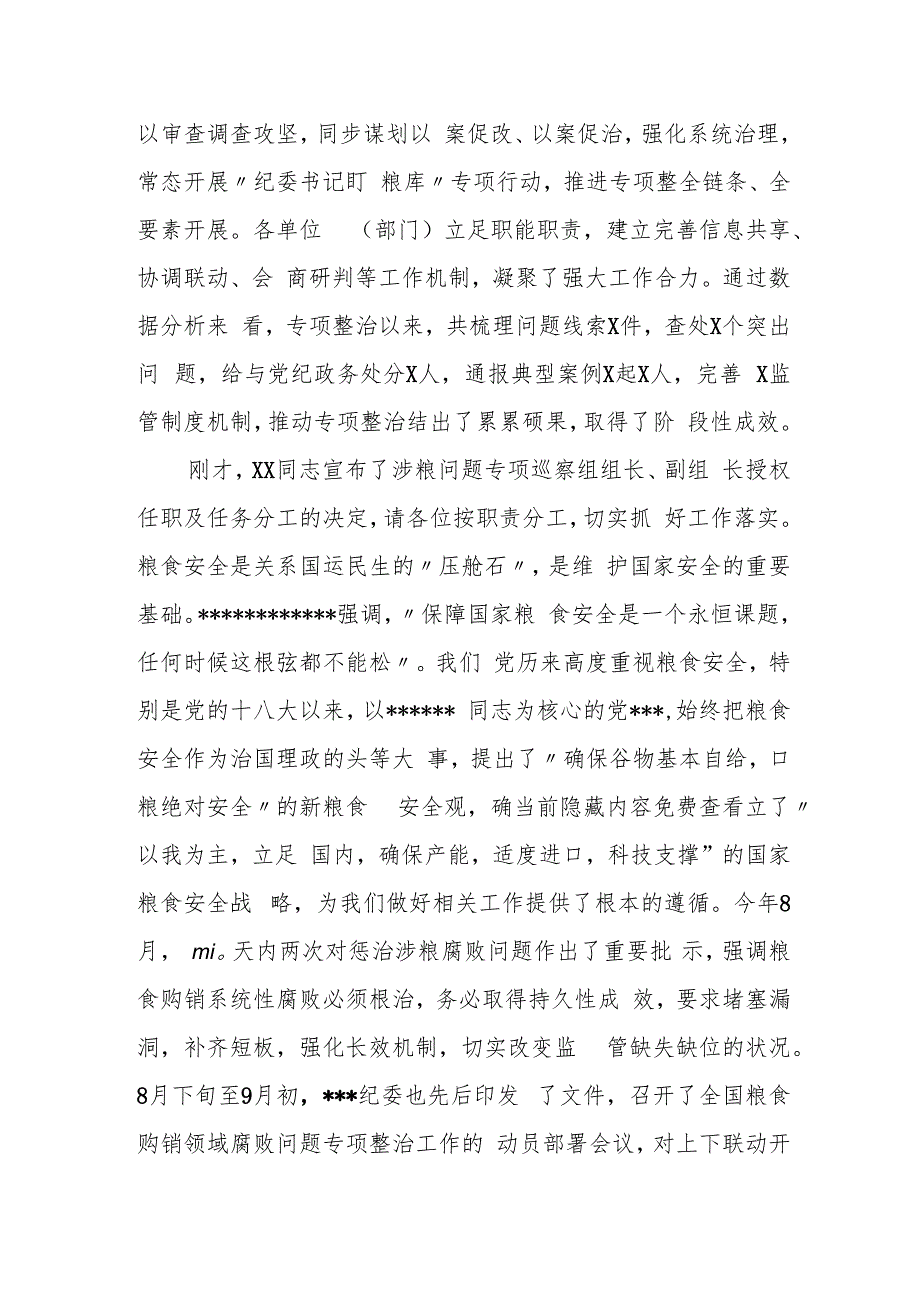 以审查调查攻坚，同步谋划以 案促改、以案促治，强化系统治理，
常态开展〃纪委书记盯 粮库〃专项行动，推进专项整全链条、全
要素开展。各单位 （部门）立足职能职责，建立完善信息共享、
协调联动、会 商研判等工作机制，凝聚了强大工作合力。通过数
据分析来 看，专项整治以来，共梳理问题线索X件，查处X个突出
问 题，给与党纪政务处分X人，通报典型案例X起X人，完善 X监
管制度机制，推动专项整治结出了累累硕果，取得了阶 段性成效。
刚才，XX同志宣布了涉粮问题专项巡察组组长、副组 长授权
任职及任务分工的决定，请各位按职责分工，切实抓 好工作落实。
粮食安全是关系国运民生的〃压舱石〃，是维 护国家安全的重要
基础。*************强调，〃保障国家粮 食安全是一个永恒课题，
任何时候这根弦都不能松〃。我们 党历来高度重视粮食安全，特
别是党的十八大以来，以****** 同志为核心的党***,始终把粮食
安全作为治国理政的头等大 事，提出了〃确保谷物基本自给，口
粮绝对安全〃的新粮食 安全观，确当前隐藏内容免费查看立了〃
以我为主，立足 国内，确保产能，适度进口，科技支撑”的国家
粮食安全战 略，为我们做好相关工作提供了根本的遵循。今年8
月， mi。天内两次对惩治涉粮腐败问题作出了重要批 示，强调粮
食购销系统性腐败必须根治，务必取得持久性成 效，要求堵塞漏
洞，补齐短板，强化长效机制，切实改变监 管缺失缺位的状况。
8月下旬至9月初，***纪委也先后印发 了文件，召开了全国粮食
购销领域腐败问题专项整治工作的 动员部署会议，对上下联动开